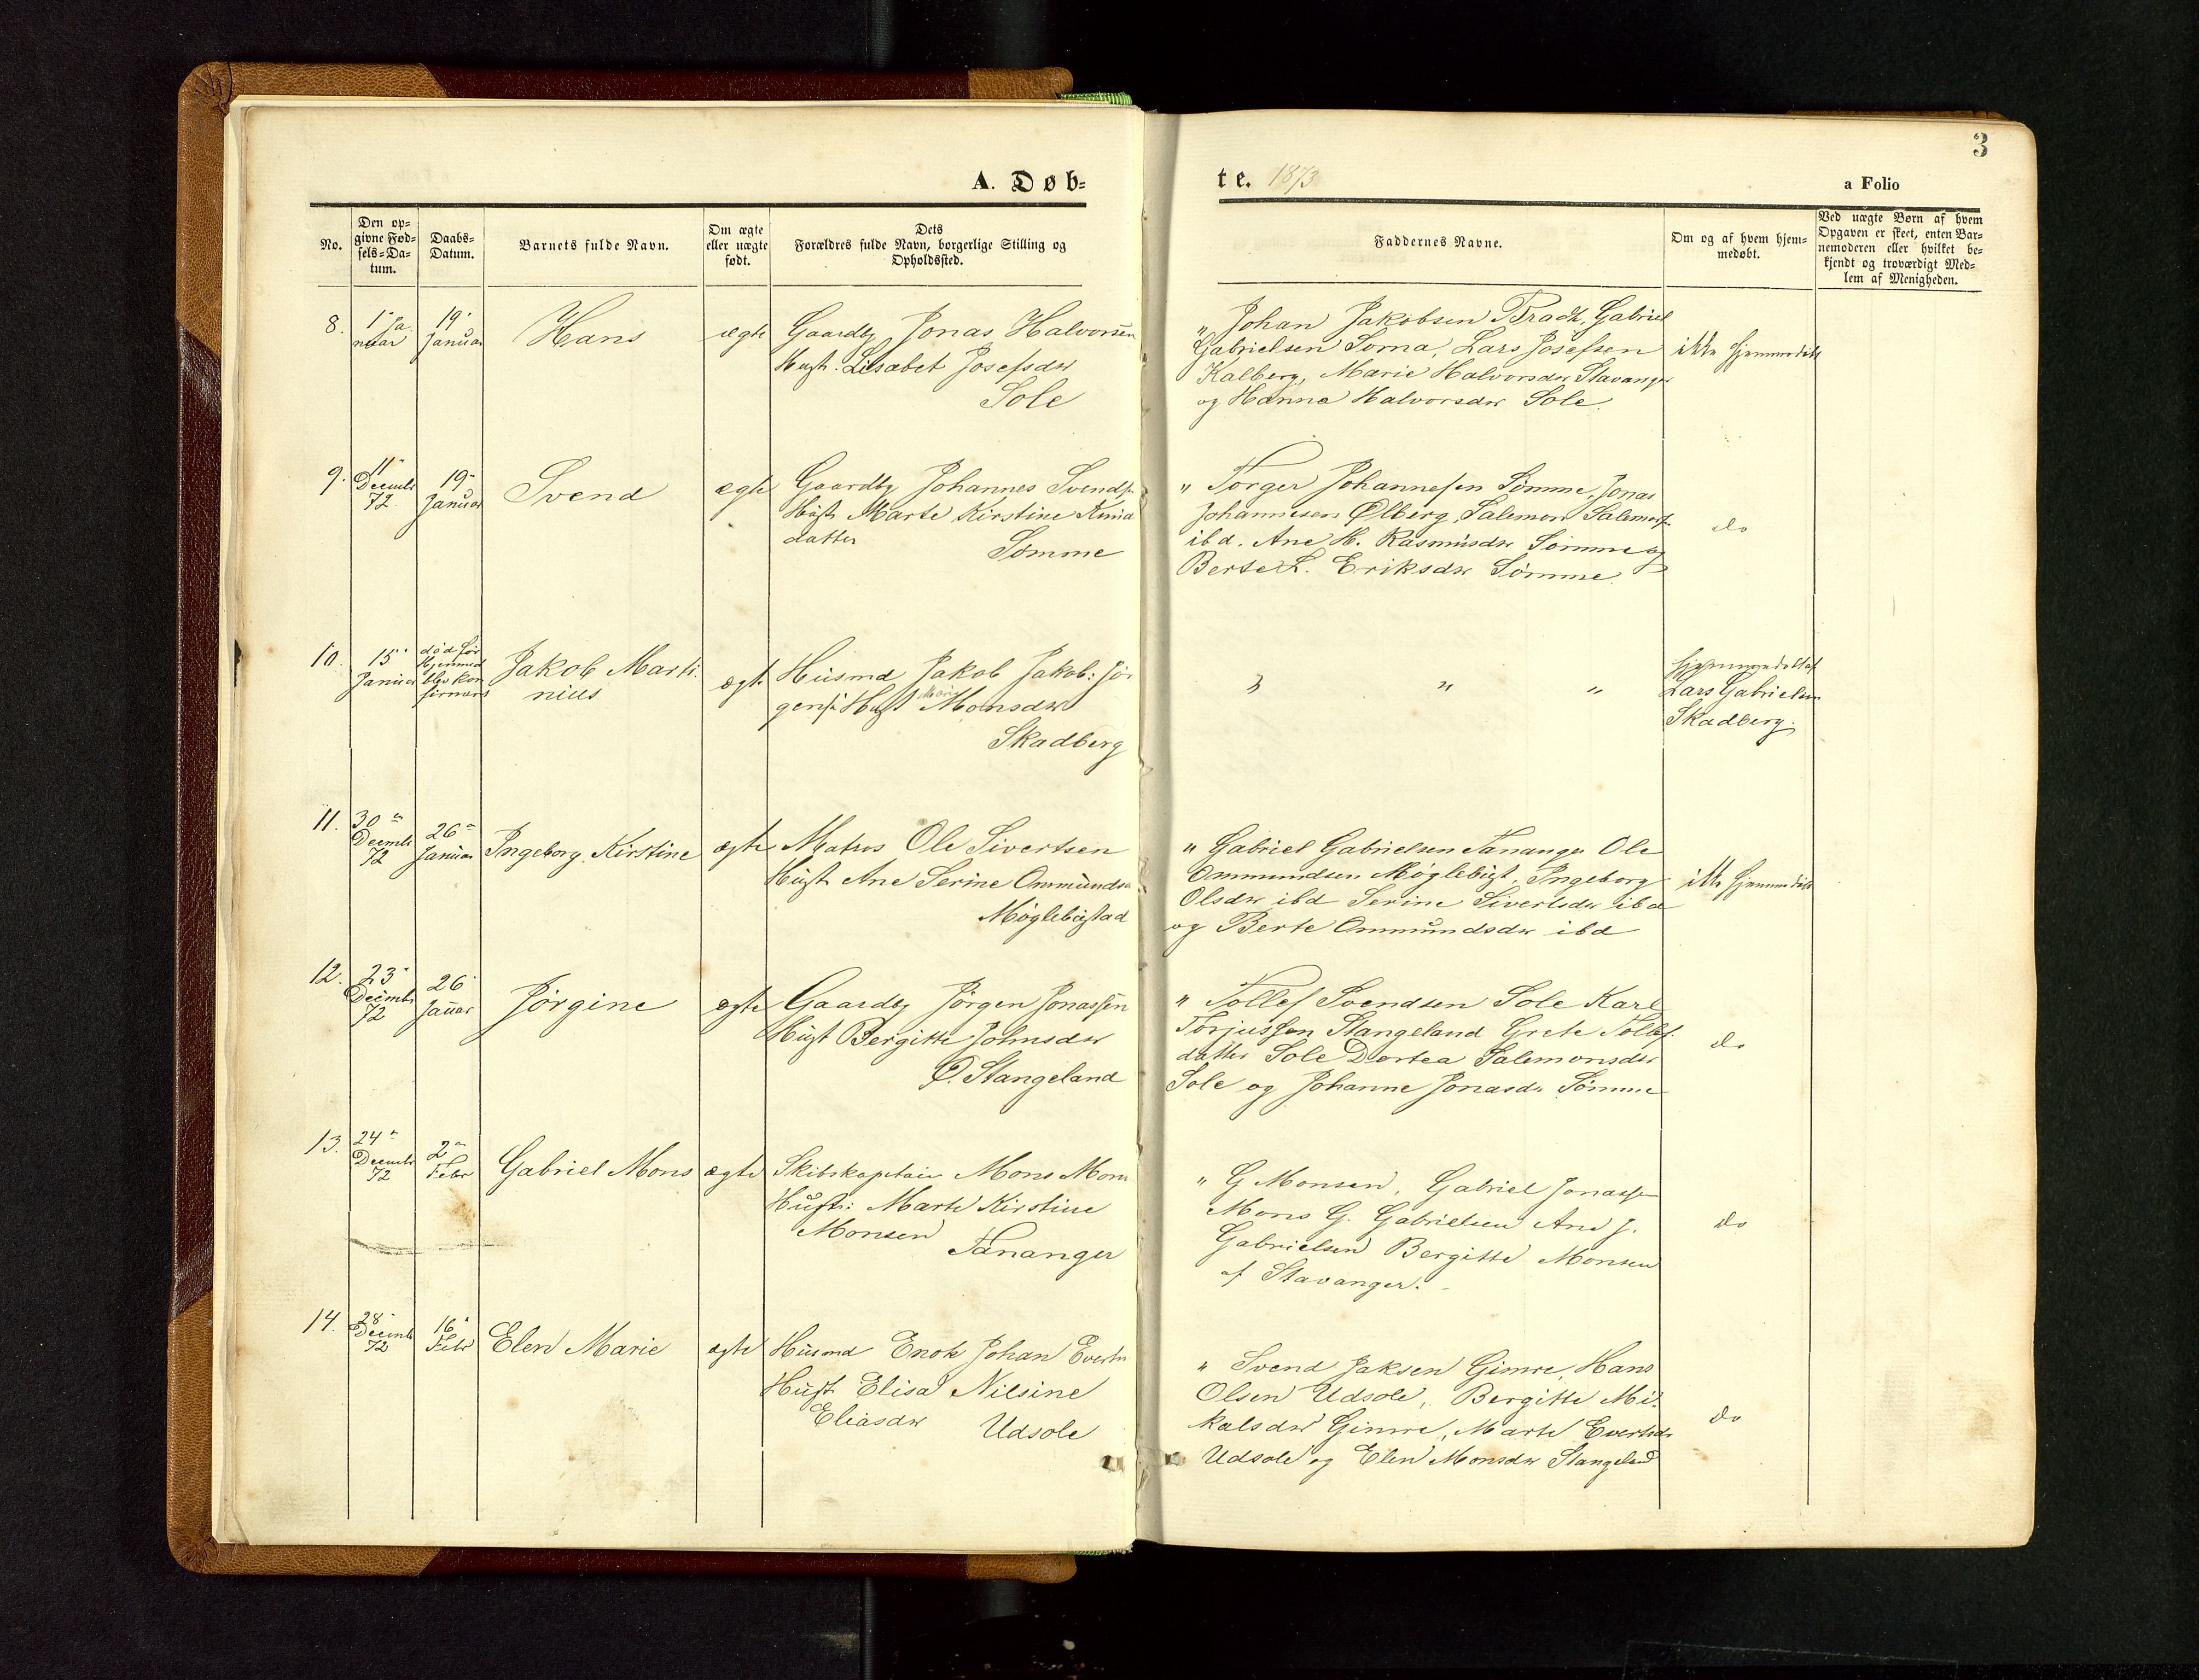 3
A. Døb=
te. 1873
a Folio
No.
Den op=
givne Fød=
sels=Da=
tum.
Daabs=
Datum.
Barnets fulde Navn.
Om ægte
eller uægte
født.
Dets
Forældres fulde Navn, borgerlige Stilling og
Opholdssted.
Faddernes Navne.
Om og af hvem hjem=
medøbt.
Ved uægte Børn af hvem
Opgaven er skeet, enten Bar=
nemoderen eller hvilket be=
kjendt og troværdigt Med=
lem af Menigheden.
8.
1" Ja
nuar
19"
Januar
Hans
ægte
Gaardbg Jonas Halvorsen
Hust. Lisabet Josefsdr
Sole
" Johan Jakobsen Gabriel
Gabrielsen Soma, Lars Josefsen
Kalberg, Marie Halvorsdr Stavanger
og Hanna Halvorsdr Sole.
ikke hjemmedøbt
9.
11"
Decembr
72.
19"
Januar
Svend
ægte
Gaardbg Johannes Svends.
Hust Marte Kirstine
datter
Sømme
" Torger Johannesen Sømme, Jonas
Johannesen Ølberg, Salemon Salemons.
ibd. Ane H. Rasmusdr Sømme og
Berte L. Eriksdr Sømme.
do
10.
15"
Januar
død før
Hjemmed
blev kon
firmers
Jakob Marti
nius
ægte
Husmd Jakob Jakob: Jør
gens: Hust Marie Monsdr
Skadberg
" " "
hjemmedøbt af
Lars Gabrielsen
Skadberg.
11.
30"
Decembr
72
26"
Januar
Ingeborg Kirstine
ægte
Matros Ole Sivertsen
Hust Ane Serine Ommunds
Møglebustad
" Gabriel Gabrielsen Tananger Ole
Ommundsen Møglebust, Ingeborg
Olsdr ibd Serine Sivertsdr ibd
og Berte Ommundsdr ibd
ikke hjemmedøbt
12.
23"
Decembr
72
26"
Januar
Jørgine
ægte
Gaardbg Jørgen Jonassen
Hust Bergitte Johnsdr
Ø. Stangeland
" Tollef Svendsen Sole Karl
Torjussen Stangeland Grete Tollef.
datter Sole Dortea Salemonsdr
Sole og Johanne Jonasdr Sømme
do
13.
24"
Decembr
72
2"
Febr
Gabriel Mons
ægte
Skibskaptain Mons Mons
Hustr: Marte Kirstine
Monsen
Tananger
" G Monsen, Gabriel Jonassen
Mons G. Gabrielsen Ane J.
Gabrielsen Bergitte Monsen
af Stavanger.
do
14.
28"
Decembr
72
16"
Febr
Elen Marie
ægte
Husmd Enok Johan Evertsn
Hust Elisa Nilsine
Eliasdr
Udsole
" Svend Jaksen Gimre, Hans
Olsen Udsole, Bergitte Mi.
kalsdr Gimre, Marte Evertsdr
Udsole og Elen Monsdr Stangeland
do